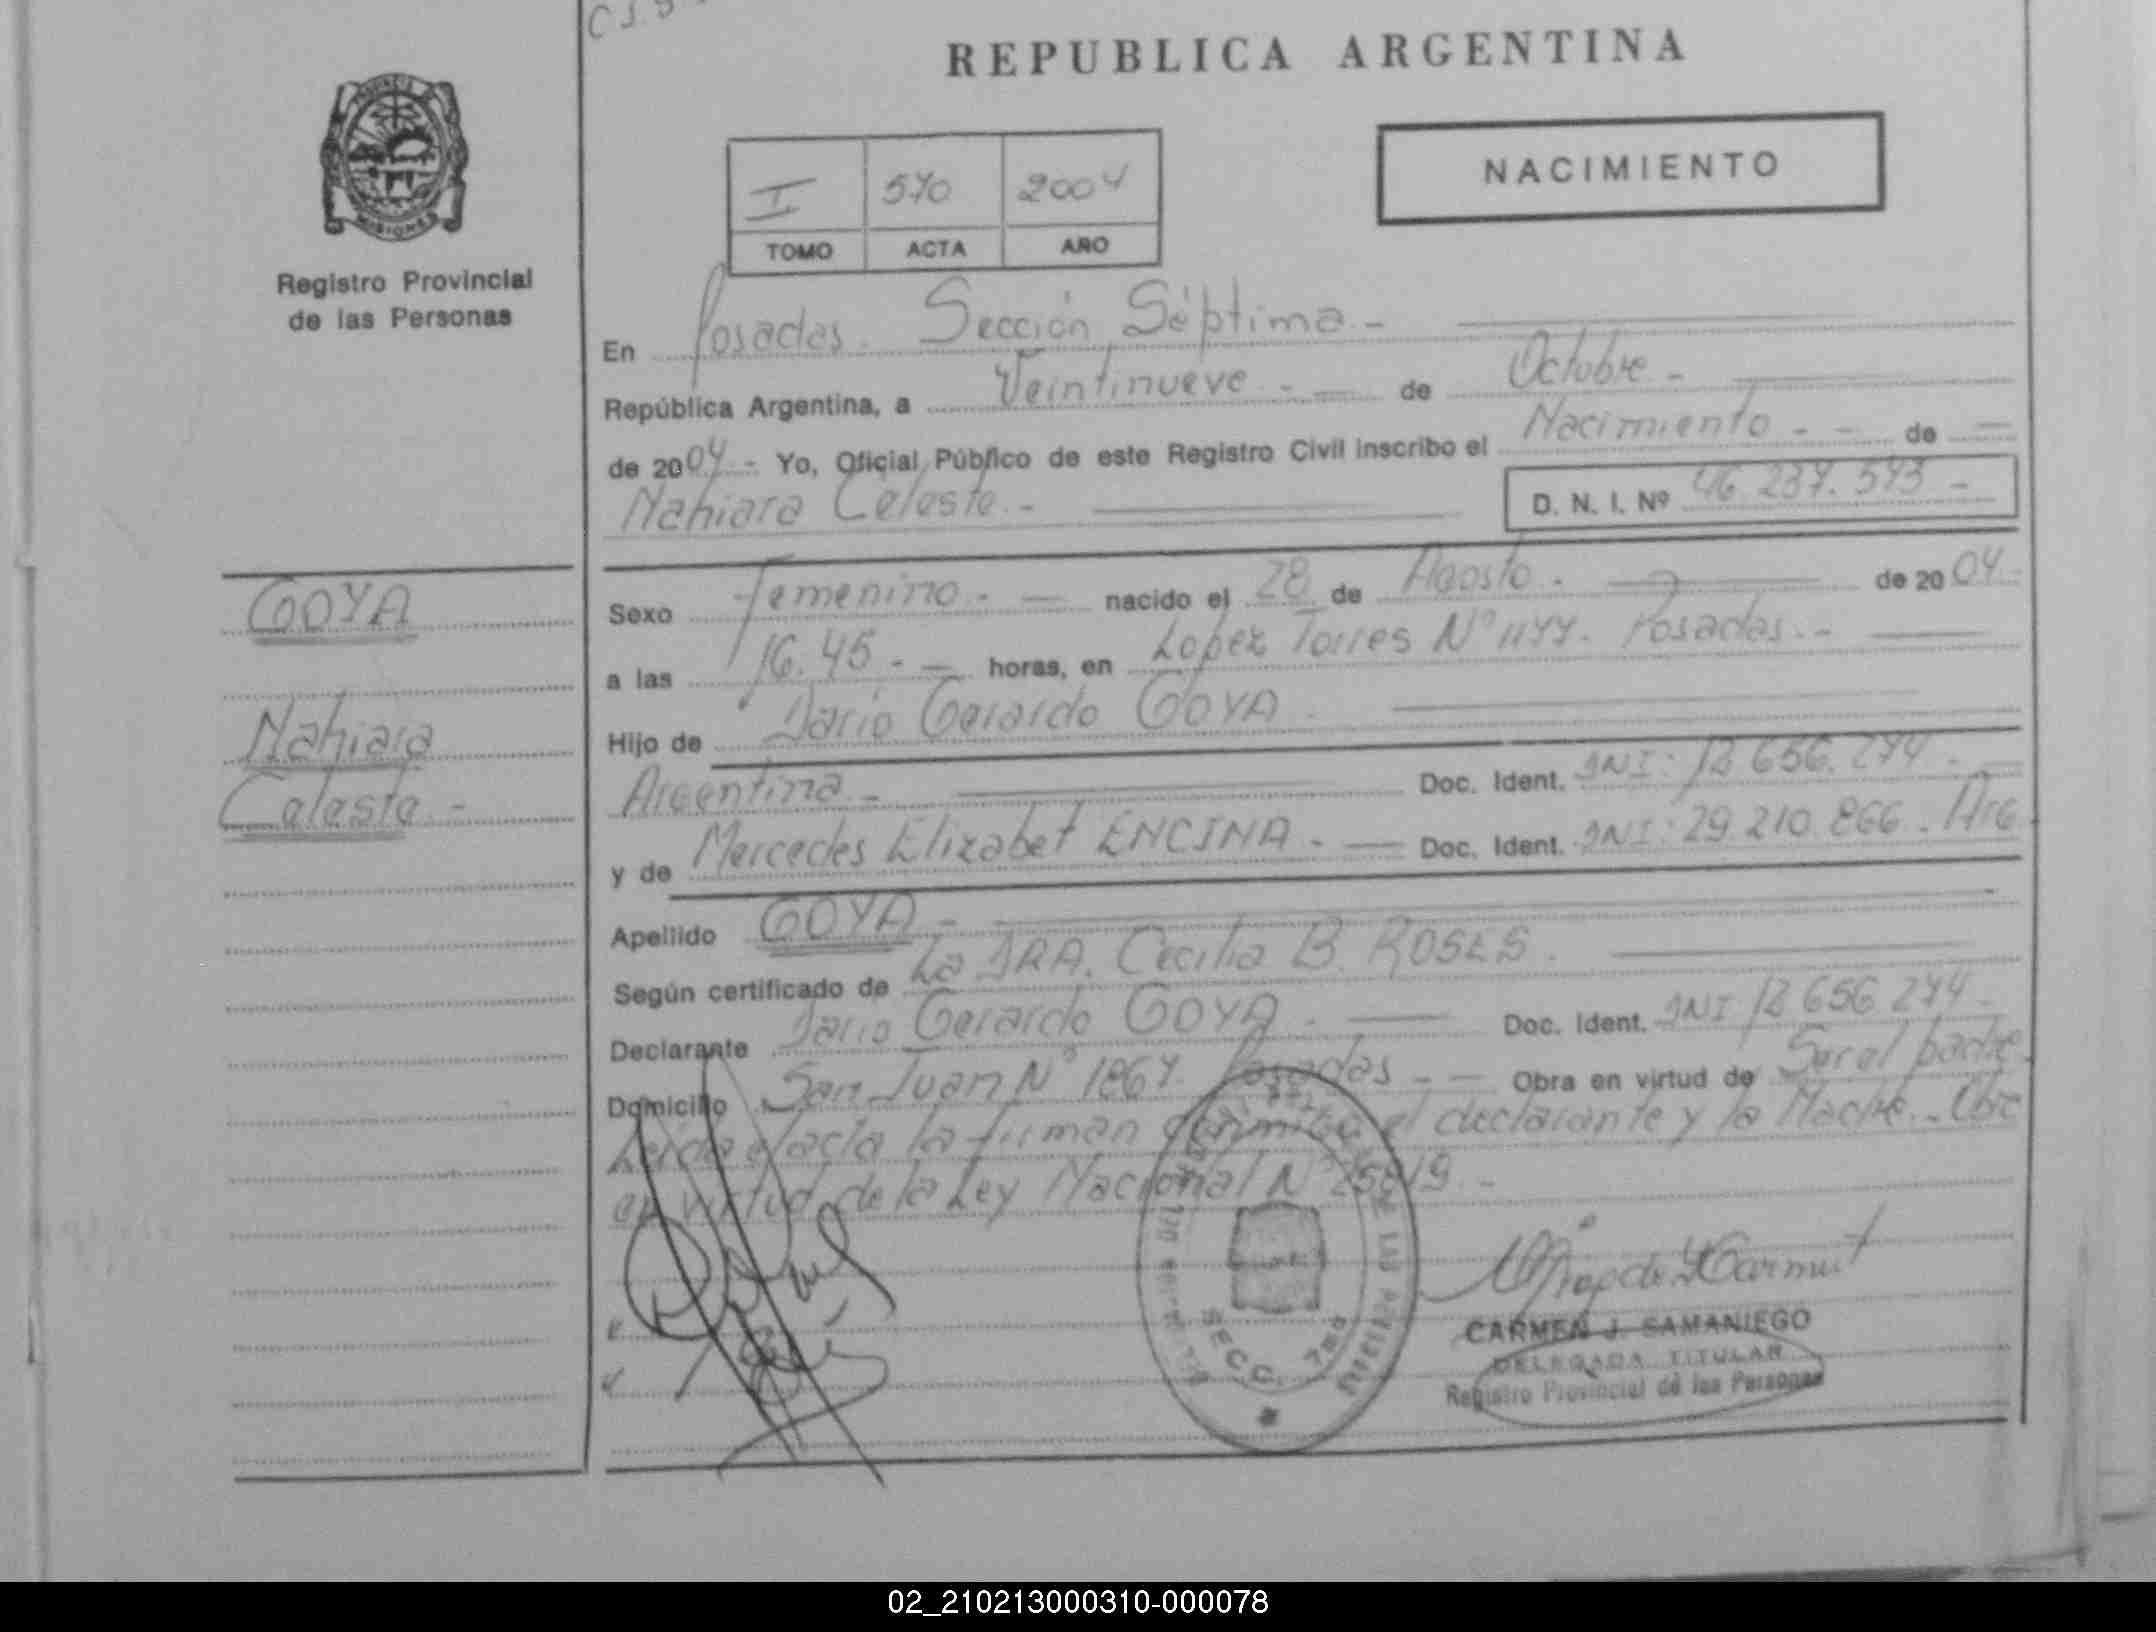 REPUBLICA ARGENTINA
PROVINCIA DE MISIONES
Registro Provincial
de las Personas
NACIMIENTO
I 570 2004
TOMO ACTA AÑO
En Posadas. Sección Séptima.-
República Argentina, a Veintinueve.- de Octubre.-
de 2004.- Yo, Oficial Público de este Registro Civil inscribo el Nacimiento.- - de -
Nahiara Celeste.-
D. N. I. Nº 46.237.573.-
GOYA
Nahiara
Celeste.-
Sexo Femenino.- nacido el 28 de Agosto. de 2004.
a las 16.45.- horas, en Lopez Torres Nº 1177. Posadas.-
Hijo de Dario Gerardo GOYA.
Argentina.- Doc. Ident. DNI: 656.274.-
y de Mercedes Elizabet ENCINA.- Doc. Ident. DNI: 29.210.866. Arg
Apellido GOYA.-
Según certificado de La DRA. Cecilia B. ROSES.
Declarante Dario Gerardo GOYA.- Doc. Ident. DNI 656.274.-
Domicilio San Juan Nº 1867. Posadas.- - Obra en virtud de Ser el padre
Leida el acta la firman el declarante y la Madre.-
en virtud de la Ley Nacional Nº 25819.-
SECC. 7ma
CARMEN J. SAMANIEGO
DELEGADA TITULAR
Registro Provincial de las Personas
02_210213000310-000078